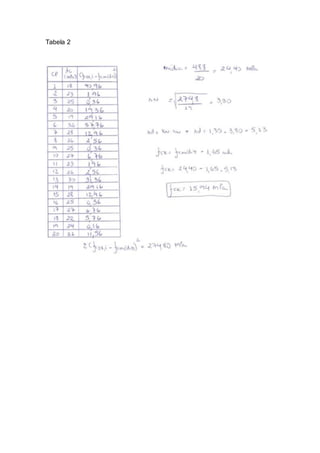 Tabela 2
CP (fc,i - fcmédia)²
1 18 40,96
2 23 1,96
3 25 0,36
4 20 19,36
5 19 29,16
6 32 57,76
7 28 12,96
8 26 2,56
9 25 0,36
10 27 6,76
11 23 1,96
12 26 2,56
13 30 31,36
14 19 29,16
15 28 12,96
16 25 0,36
17 27 6,76
18 22 5,76
19 24 0,16
20 21 11,56
média = 488 = 24,40 MPa
20
= 274,8 = 3,80
19
sd = 1,35 . 3,80 = 5,13
fck = fcmédia - 1,65 sd
fck = 24,40 - 1,65 . 5,13
fck = 15,94 MPa
Σ(fc,i - fcmédia)² = 274,80 MPa